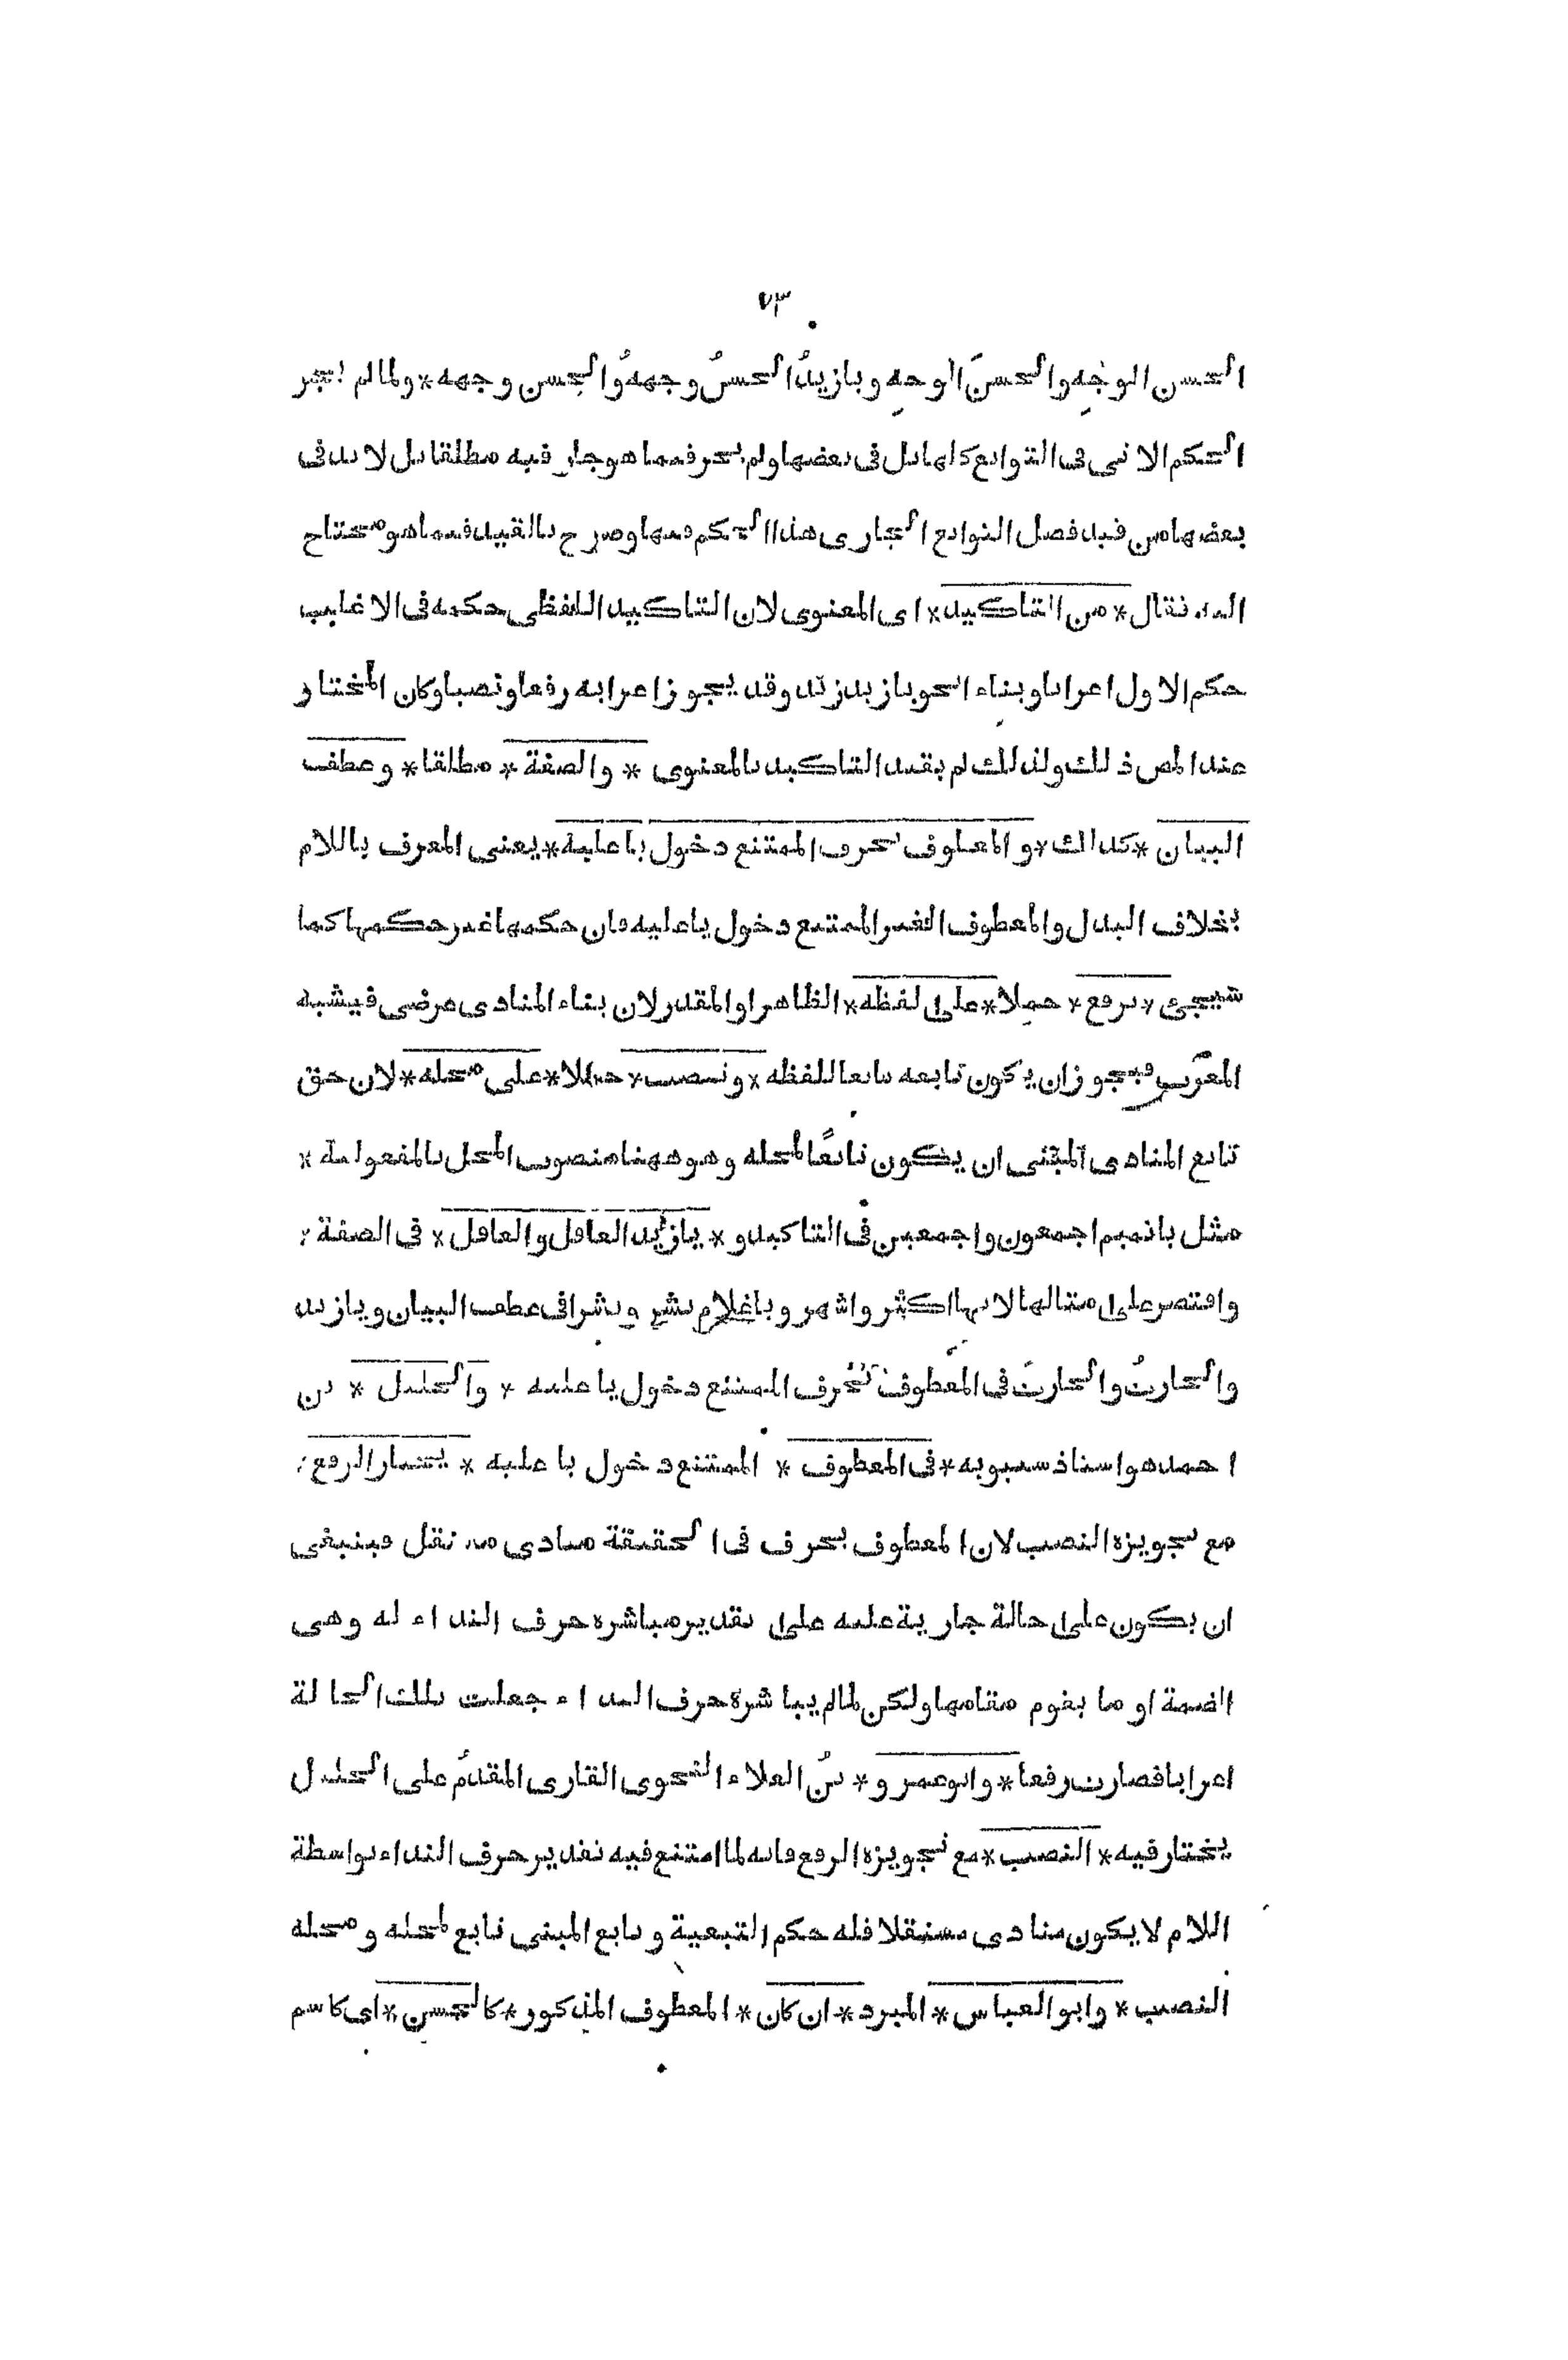 ٧٣
الحسن الوجْهِ والحسنَ الوجهِ ويازيدُ الحسنُ وجههُ والحسن وجهه * ولما لم يجر
الحكم الاتى فى التوابع كلها بل فى بعضها ولم يجر فيما هو جار فيه مطلقا بل لا بد فى
بعضها من قيد فصل التوابع الجارى هذا الحكم فيها وصرح بالقيد فيما هو محتاج
اليه فقال * من التاكيد * اى المعنوى لان التاكيد اللفظى حكمه فى الاغلب
حكم الاول اعرابا وبناء نحو يازيد زيد وقد يجوز اعرابه رفعا ونصبا وكان المختار
عند المص ذلك ولذلك لم يقيد التاكيد بالمعنوى * والصفة * مطلقا * وعطف
البيان * كذلك * و المعطوف بحرف الممتنع دخول يا عليه * يعنى المعرف باللام
بخلاف البدل والمعطوف الغير الممتنع دخول يا عليه فان حكمها غير حكمها كما
سيجئ * يرفع * حملا * على لفظه * الظاهر او المقدر لان بناء المنادى عرضى فيشبه
المعرب فيجوز ان يكون تابعه تابعا للفظه * وينصب * حملا * على محله * لان حق
تابع المنادى المبنى ان يكون تابعًا لمحله وهو ههنا منصوب المحل بالمفعولية *
مثل ياتميم اجمعون واجمعين فى التاكيد و * يازيد العاقل والعاقل * فى الصفة *
واقتصر على مثالها لانها اكثر واشهر وياغلام بشر وبشرا فى عطف البيان ويازيد
والحارثُ والحارثَ فى المعطوف بحرف الممتنع دخول يا عليه * والخليل * بن
احمد هو استاذ سيبويه * فى المعطوف * الممتنع دخول يا عليه * يختار الرفع *
مع تجويزه النصب لان المعطوف بحرف فى الحقيقة منادى مستقل فينبغى
ان يكون على حالة جارية عليه على تقدير مباشرة حرف النداء له وهى
الضمة او ما يقوم مقامها ولكن لما لم يباشره حرف النداء جعلت تلك الحالة
اعرابا فصارت رفعا * وابو عمرو * بنُ العلاء النحوى القارى المقدم على الخليل
يختار فيه * النصب * مع تجويزه الرفع فانه لما امتنع فيه تقدير حرف النداء بواسطة
اللام لا يكون منادى مستقلا فله حكم التبعية و تابع المبنى تابع لمحله و محله
النصب * وابو العباس * المبرد * ان كان * المعطوف المذكور * كالحسن * اى كاسم